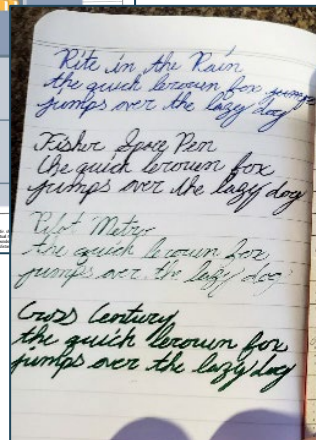 Rite in the Rain
the quick brown fox jumps
jumps over the lazy dog
Fisher Space Pen
the quick brown fox
jumps over the lazy dog
Pilot Metro
the quick brown fox
jumps over the lazy dog
Cross Century
the quick brown fox
jumps over the lazy dog